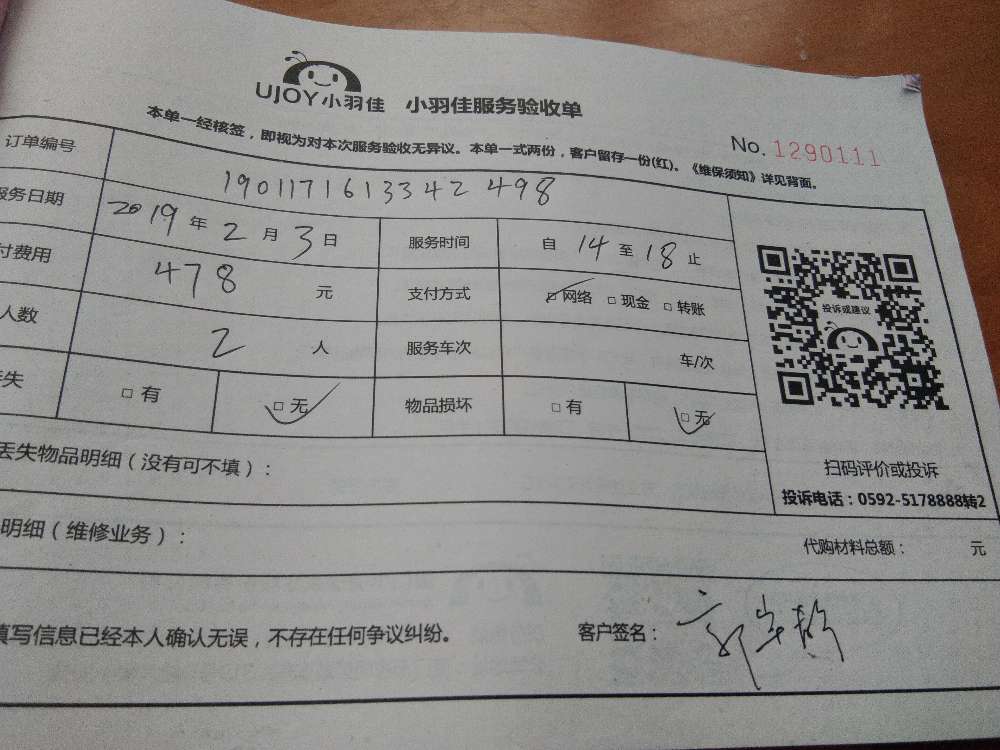 UJOY小羽佳 小羽佳服务验收单
本单一经核签，即视为对本次服务验收无异议。本单一式两份，客户留存一份(红)。《维保须知》详见背面。
No. 1290111
订单编号 1901171613342498
服务日期 2019年2月3日 服务时间 自14至18止
付费用 478元 支付方式 网络 现金 转账
人数 2人 服务车次 车/次
失 有 无 物品损坏 有 无
投诉或建议
扫码评价或投诉
投诉电话：0592-5178888转2
丢失物品明细（没有可不填）：
明细（维修业务）： 代购材料总额： 元
填写信息已经本人确认无误，不存在任何争议纠纷。 客户签名：郭